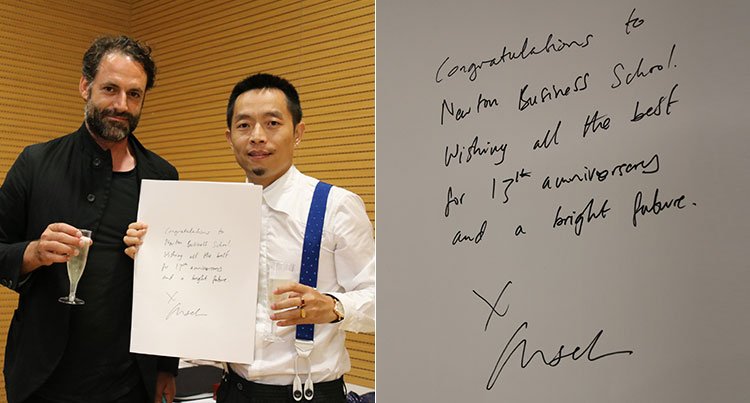 Congratulations to
Newton Business School
Wishing all the best
for 13th anniversary
and a bright future.
X
Congratulations to
Newton Business School.
Wishing all the best
for 13th anniversary
and a bright future.
X